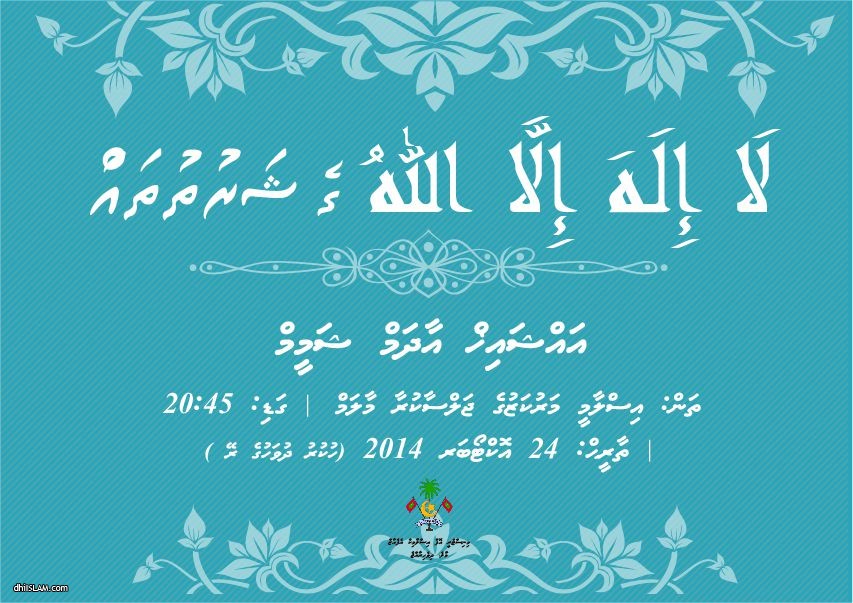 لَا إِلَهَ إِلَّا اللهُ ގެ ޝަރުތުތައް
އައްޝައިޚް އާދަމް ޝަމީމް
ތަން: އިސްލާމީ މަރުކަޒުގެ ޖަލްސާކުރާ މާލަމް | ގަޑި: 20:45
| ތާރީޙް: 24 އޮކްޓޯބަރ 2014 (ހުކުރު ދުވަހުގެ ރޭ )
މިނިސްޓްރީ އޮފް އިސްލާމިކް އެފެއާޒް
މާލެ، ދިވެހިރާއްޖެ
dhiISLAM.com